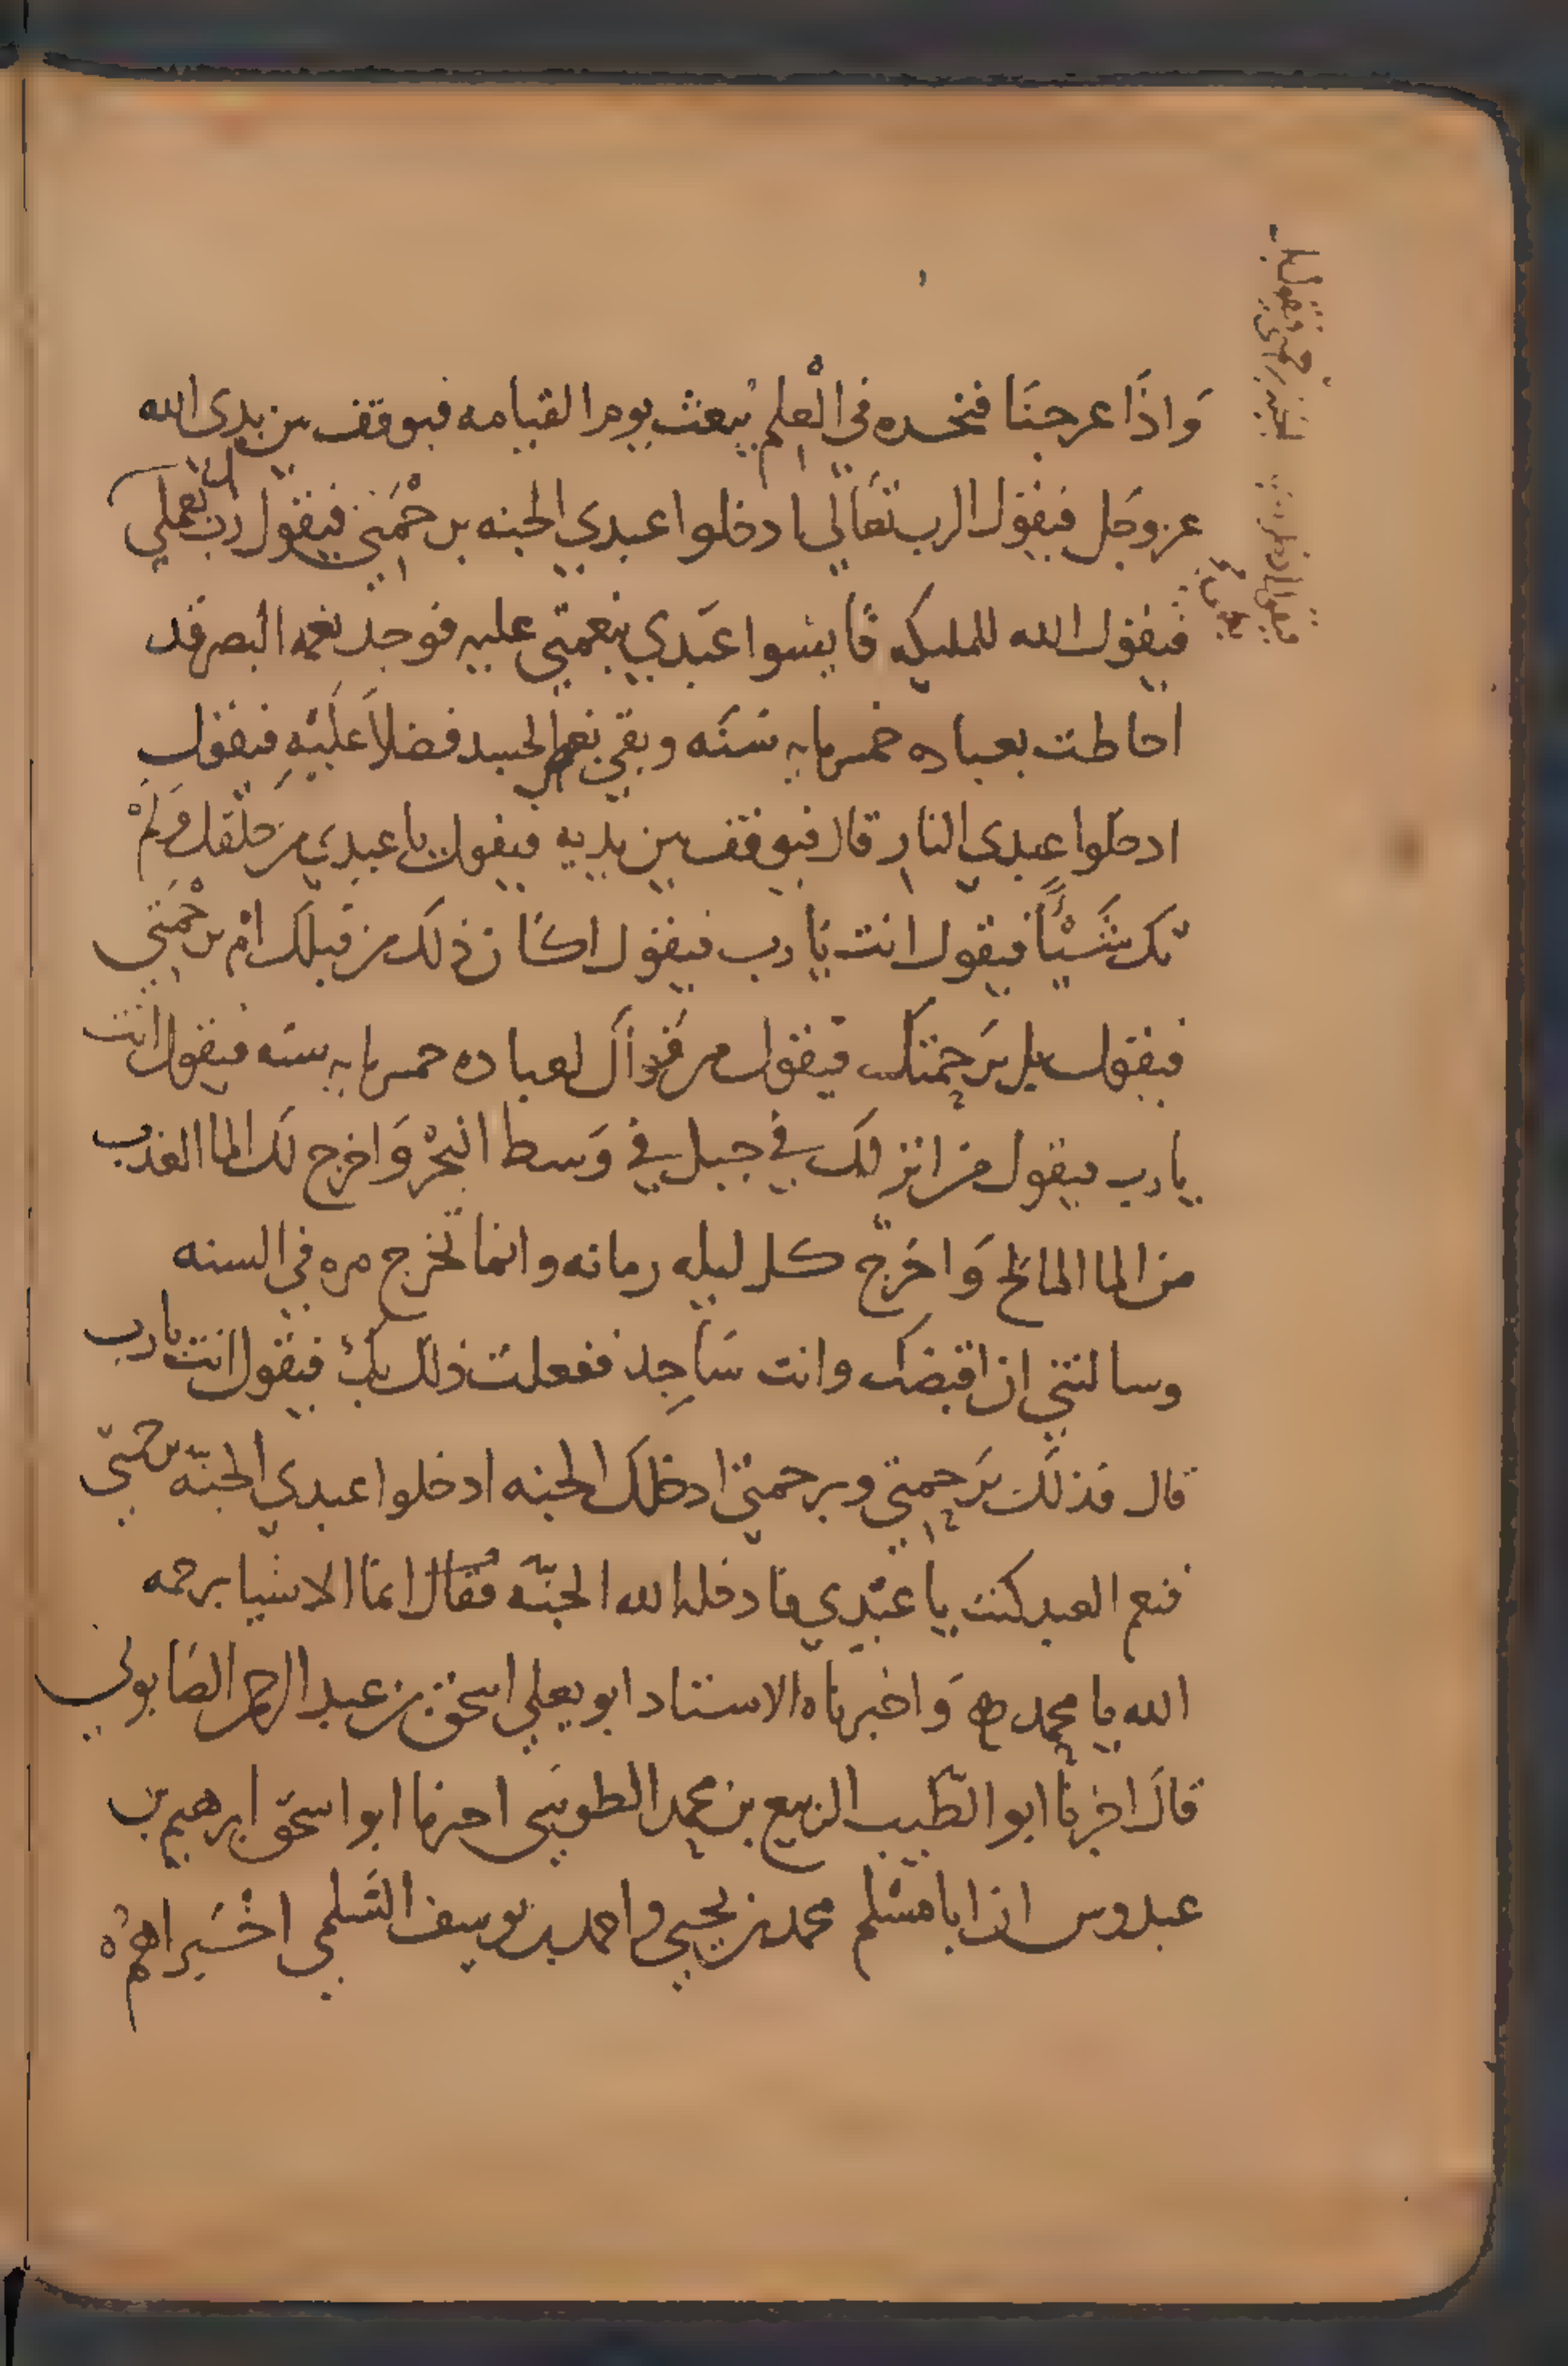 وَاذَا عرجنَا فنجده في الْعِلم يُبعث يوم القيامه فيوقف بين يدي الله
عز وجَل فيقول الرب تعَالي ادخلوا عبدي الجنه برحْمَتي فيقول رب بل بعملي
فيقول الله للمليكه قايسوا عَبدي بنعمتي عليه فتوجد نعمه البصر قد
احاطت بعباده خمسمايه سَنَه وبقي نعم الجسد فضلاً عَلَيْهِ فيقول
ادخلوا عبدي النار قال فيوقف بين يديه فيقول يا عبدي من خلقك وَلمْ
تَك شَيْئًا فيقول انت يَا رب فيقول اكَان ذلَك من قبلَك امْ برحْمَتي
فيقول بل برَحمتك فيقول من قوَّاك لعباده خمسمايه سنه فيقول انت
يا رب فيقول من انزلك في جبل في وَسط البحْر وَاخرج لَك الما العذب
من الما المالح وَاخرَج كل ليله رمانه وانما تخرج مره في السنه
وسالتني ان اقبضَك وانت سَاجِد ففعلت ذلك بك فيقول انت يا رب
قال فذلَك برَحمتي وبرحمتي ادخلك الجنه ادخلوا عبدي الجنّه برحمتي
فنعم العبد كنت يا عَبْدي فادخله الله الجنّه فقال انما الاشيا برحمه
الله يا محمد ه وَاخبرناه الاستاد ابو يعلي اسحق بن عبد الرحمن الصَابوني
قالَ اخبرنا ابو الطّيب الربيع بن محمد الطوسَي اخبرنا ابو اسحق ابرهيم بن
عبدوس ان ابا مسْلم محمد بن يحيي واحمد بن يوسف السَلمي اخْبَراهمْ